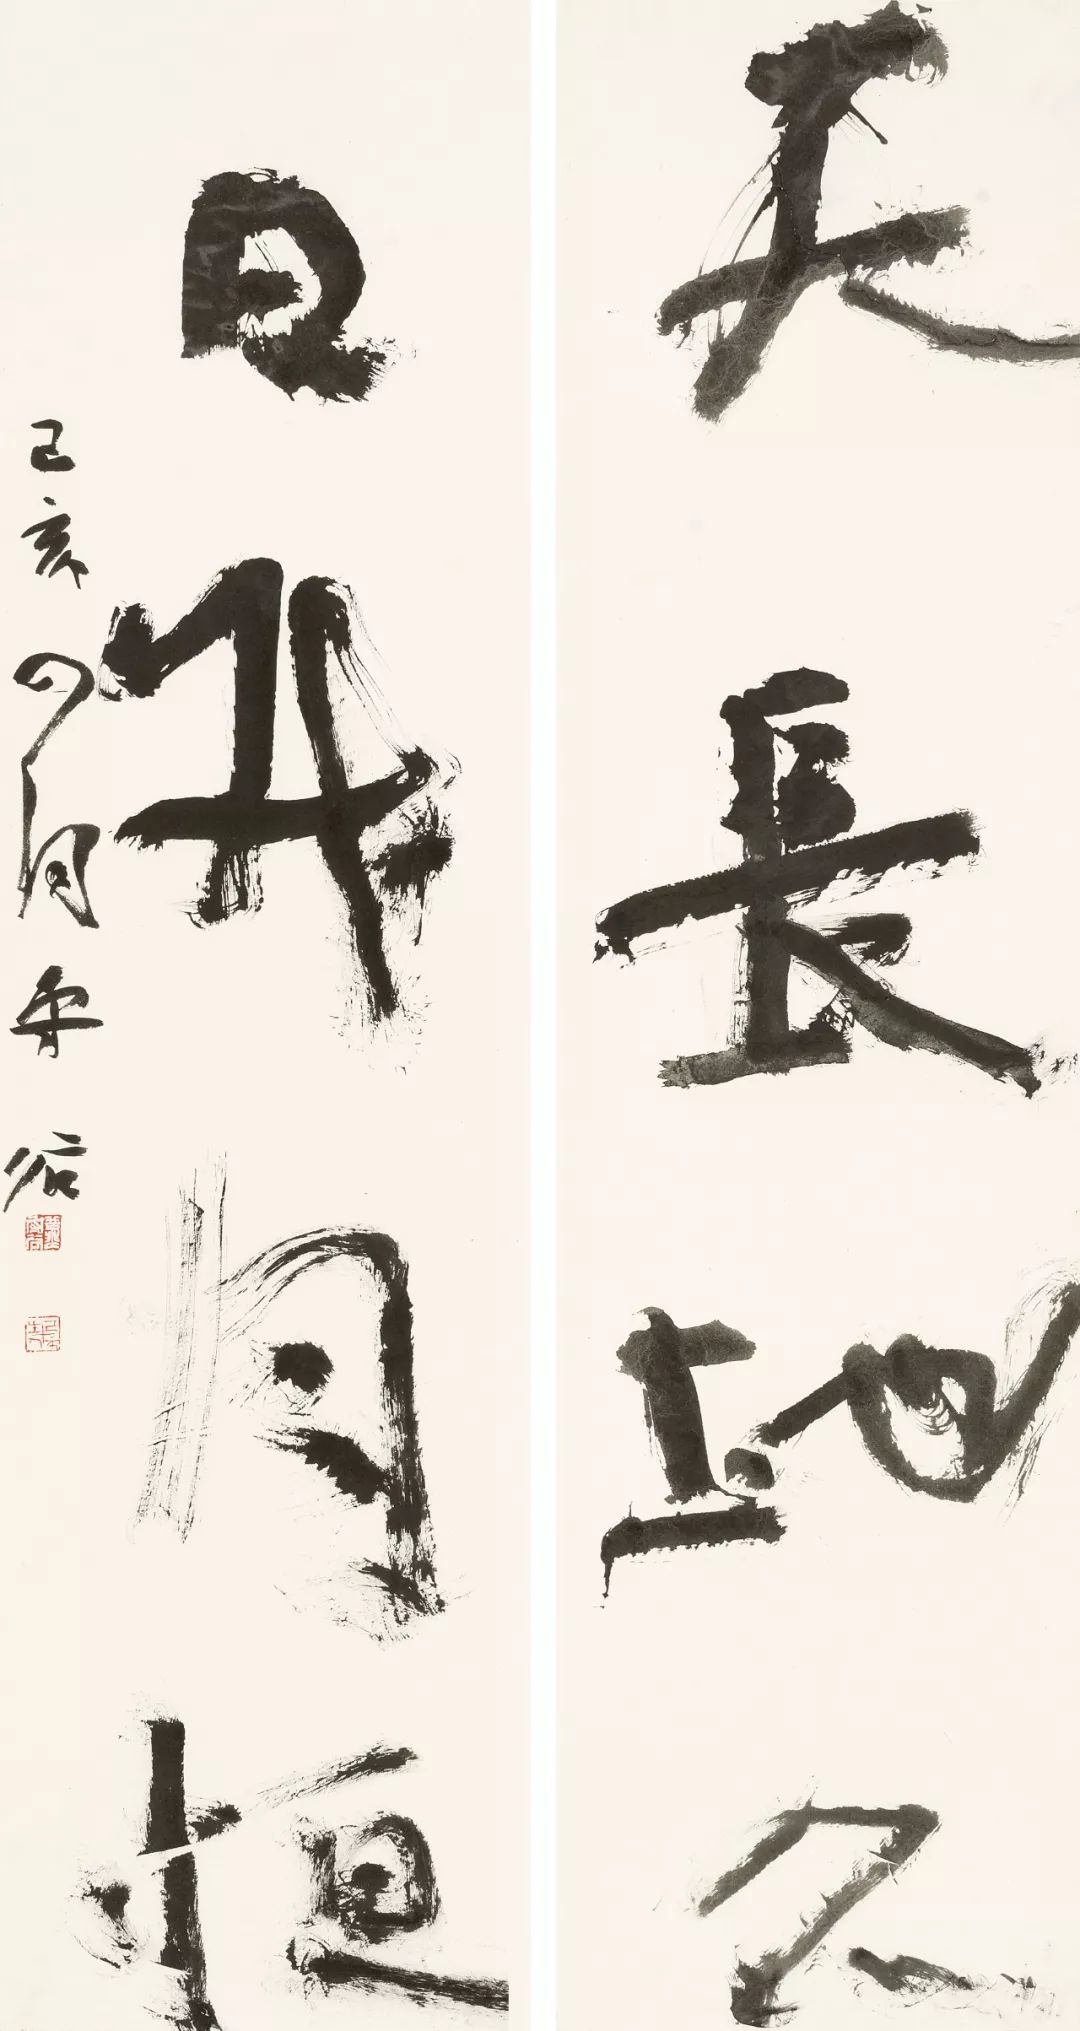 天長地久
日升月恒
己亥四月